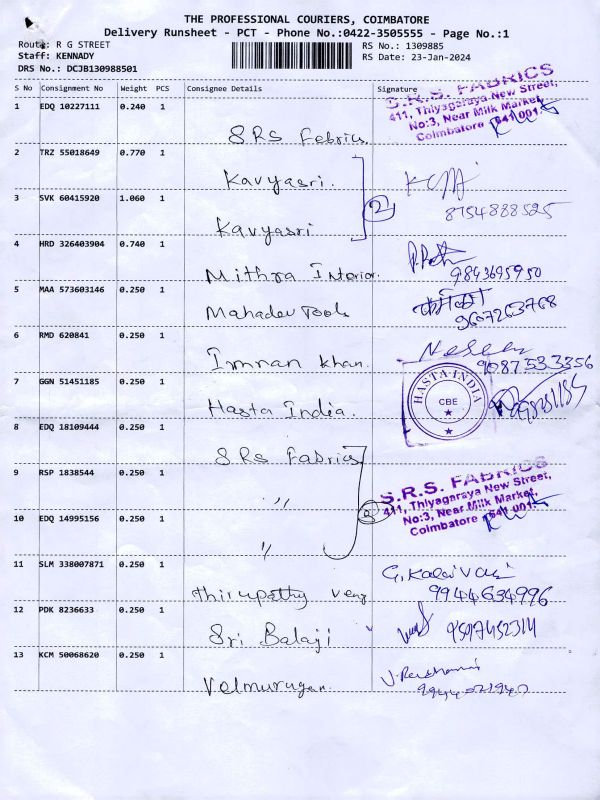 THE PROFESSIONAL COURIERS, COIMBATORE
Delivery Runsheet - PCT - Phone No.:0422-3505555 - Page No.:1
Route: R G STREET
RS No.: 1309885
Staff: KENNADY
RS Date: 23-Jan-2024
DRS No.: DCJB130988501
S No Consignment No Weight PCS Consignee Details Signature
S.R.S. FABRICS
411, Thiyagaraya New Street,
No:3, Near Milk Market,
Coimbatore - 641 001.
1 EDQ 10227111 0.240 1
SRS Febrics.
2 TRZ 55018649 0.770 1
Kavyasri.
3 SVK 60415920 1.060 1
2
8754888525
Kavyasri
4 HRD 326403904 0.740 1
Mithra Interior.
9843695950
5 MAA 573603146 0.250 1
Mahadev Tools
9607263768
6 RMD 620841 0.250 1
Imran khan.
9087533356
7 GGN 51451185 0.250 1
HASTA INDIA
CBE
Hasta India.
8 EDQ 18109444 0.250 1
SRs Fabrics
9 RSP 1838544 0.250 1
S.R.S. FABRICS
411, Thiyagaraya New Street,
No:3, Near Milk Market,
Coimbatore - 641 001.
"
10 EDQ 14995156 0.250 1
"
11 SLM 338007871 0.250 1
G. Kalaivani
Thirupathy
9944634996
12 PDK 8236633 0.250 1
Sri Balaji
9597452314
13 KCM 50068620 0.250 1
Velmurugan.